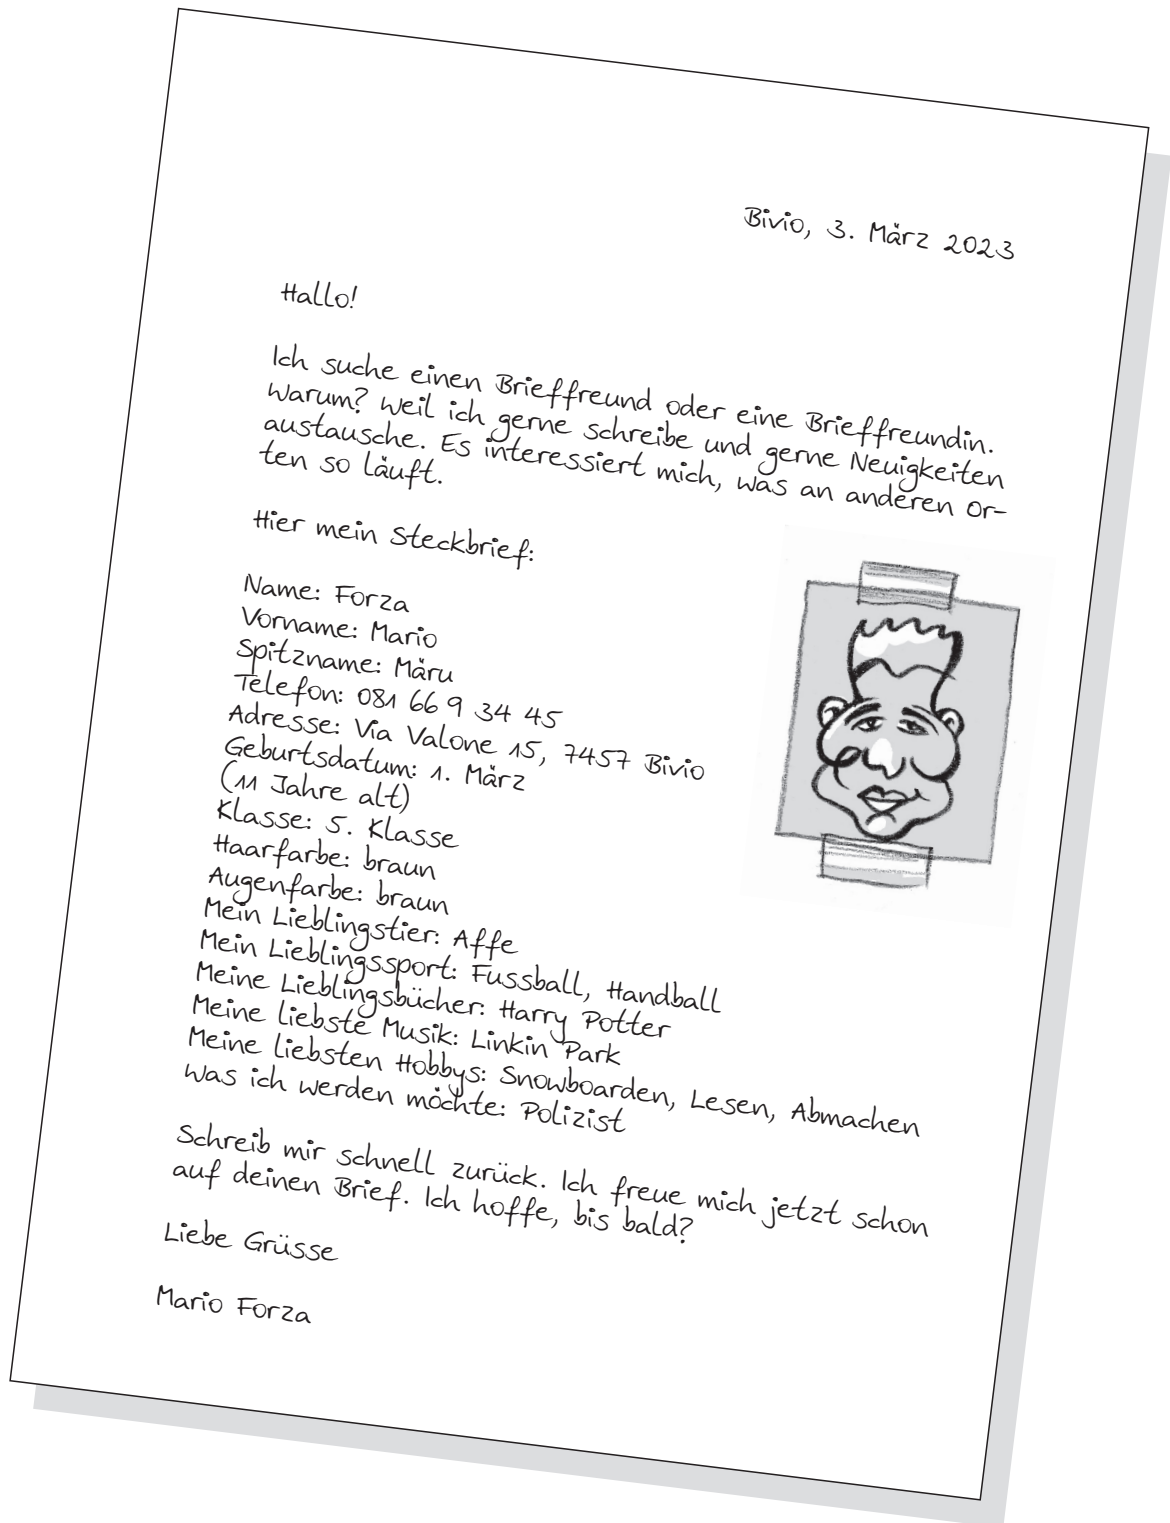 Bivio, 3. März 2023
Hallo!
Ich suche einen Brieffreund oder eine Brieffreundin.
Warum? Weil ich gerne schreibe und gerne Neuigkeiten
austausche. Es interessiert mich, was an anderen Or-
ten so läuft.
Hier mein Steckbrief:
Name: Forza
Vorname: Mario
Spitzname: Märu
Telefon: 081 66 9 34 45
Adresse: Via Valone 15, 7457 Bivio
Geburtsdatum: 1. März
(11 Jahre alt)
Klasse: 5. Klasse
Haarfarbe: braun
Augenfarbe: braun
Mein Lieblingstier: Affe
Mein Lieblingssport: Fussball, Handball
Meine Lieblingsbücher: Harry Potter
Meine liebste Musik: Linkin Park
Meine liebsten Hobbys: Snowboarden, Lesen, Abmachen
Was ich werden möchte: Polizist
Schreib mir schnell zurück. Ich freue mich jetzt schon
auf deinen Brief. Ich hoffe, bis bald?
Liebe Grüsse
Mario Forza